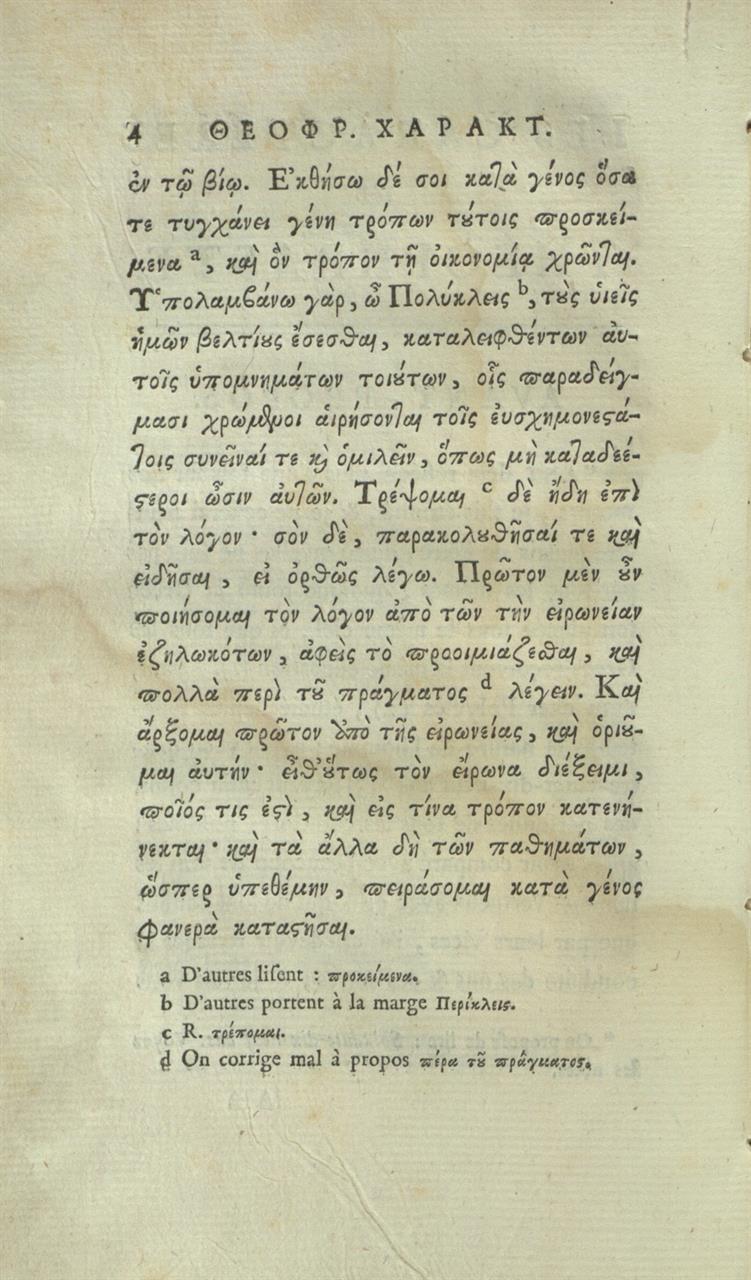 4 ΘΕΟΦΡ. ΧΑΡΑΚΤ.
ἐν τῷ βίῳ. Ἐκθήσω δέ σοι κατὰ γένος ὅσα
τε τυγχάνει γένη τρόπων τούτοις προσκεί-
μενα a, καὶ ὃν τρόπον τῇ οἰκονομίᾳ χρῶνται.
Ὑπολαμβάνω γὰρ, ὦ Πολύκλεις b, τοὺς ὑιεῖς
ἡμῶν βελτίους ἔσεσθαι, καταλειφθέντων ἀυ-
τοῖς ὑπομνημάτων τοιούτων, οἷς παραδείγ-
μασι χρώμενοι ἁιρήσονται τοῖς ἐυσχημονεστά-
τοις συνεῖναί τε καὶ ὁμιλεῖν, ὅπως μὴ καταδεέ-
στεροι ὦσιν ἀυτῶν. Τρέψομαι c δὲ ἤδη ἐπὶ
τὸν λόγον· σὸν δὲ, παρακολουθῆσαί τε καὶ
εἰδῆσαι, εἰ ὀρθῶς λέγω. Πρῶτον μὲν οὖν
ποιήσομαι τὸν λόγον ἀπὸ τῶν τὴν εἰρωνείαν
ἐζηλωκότων, ἀφεὶς τὸ προοιμιάζεσθαι, καὶ
πολλὰ περὶ τοῦ πράγματος d λέγειν. Καὶ
ἄρξομαι πρῶτον ἀπὸ τῆς εἰρωνείας, καὶ ὁριοῦ-
μαι ἀυτήν· εἶθ' οὕτως τὸν εἴρωνα διέξειμι,
ποῖός τις ἐστὶ, καὶ εἰς τίνα τρόπον κατενή-
νεκται· καὶ τὰ ἄλλα δὴ τῶν παθημάτων,
ὥσπερ ὑπεθέμην, πειράσομαι κατὰ γένος
φανερὰ καταστῆσαι.
a D'autres lisent : προκείμενα.
b D'autres portent à la marge Περίκλεις.
c R. τρέπομαι.
d On corrige mal à propos πέρα τοῦ πράγματος.